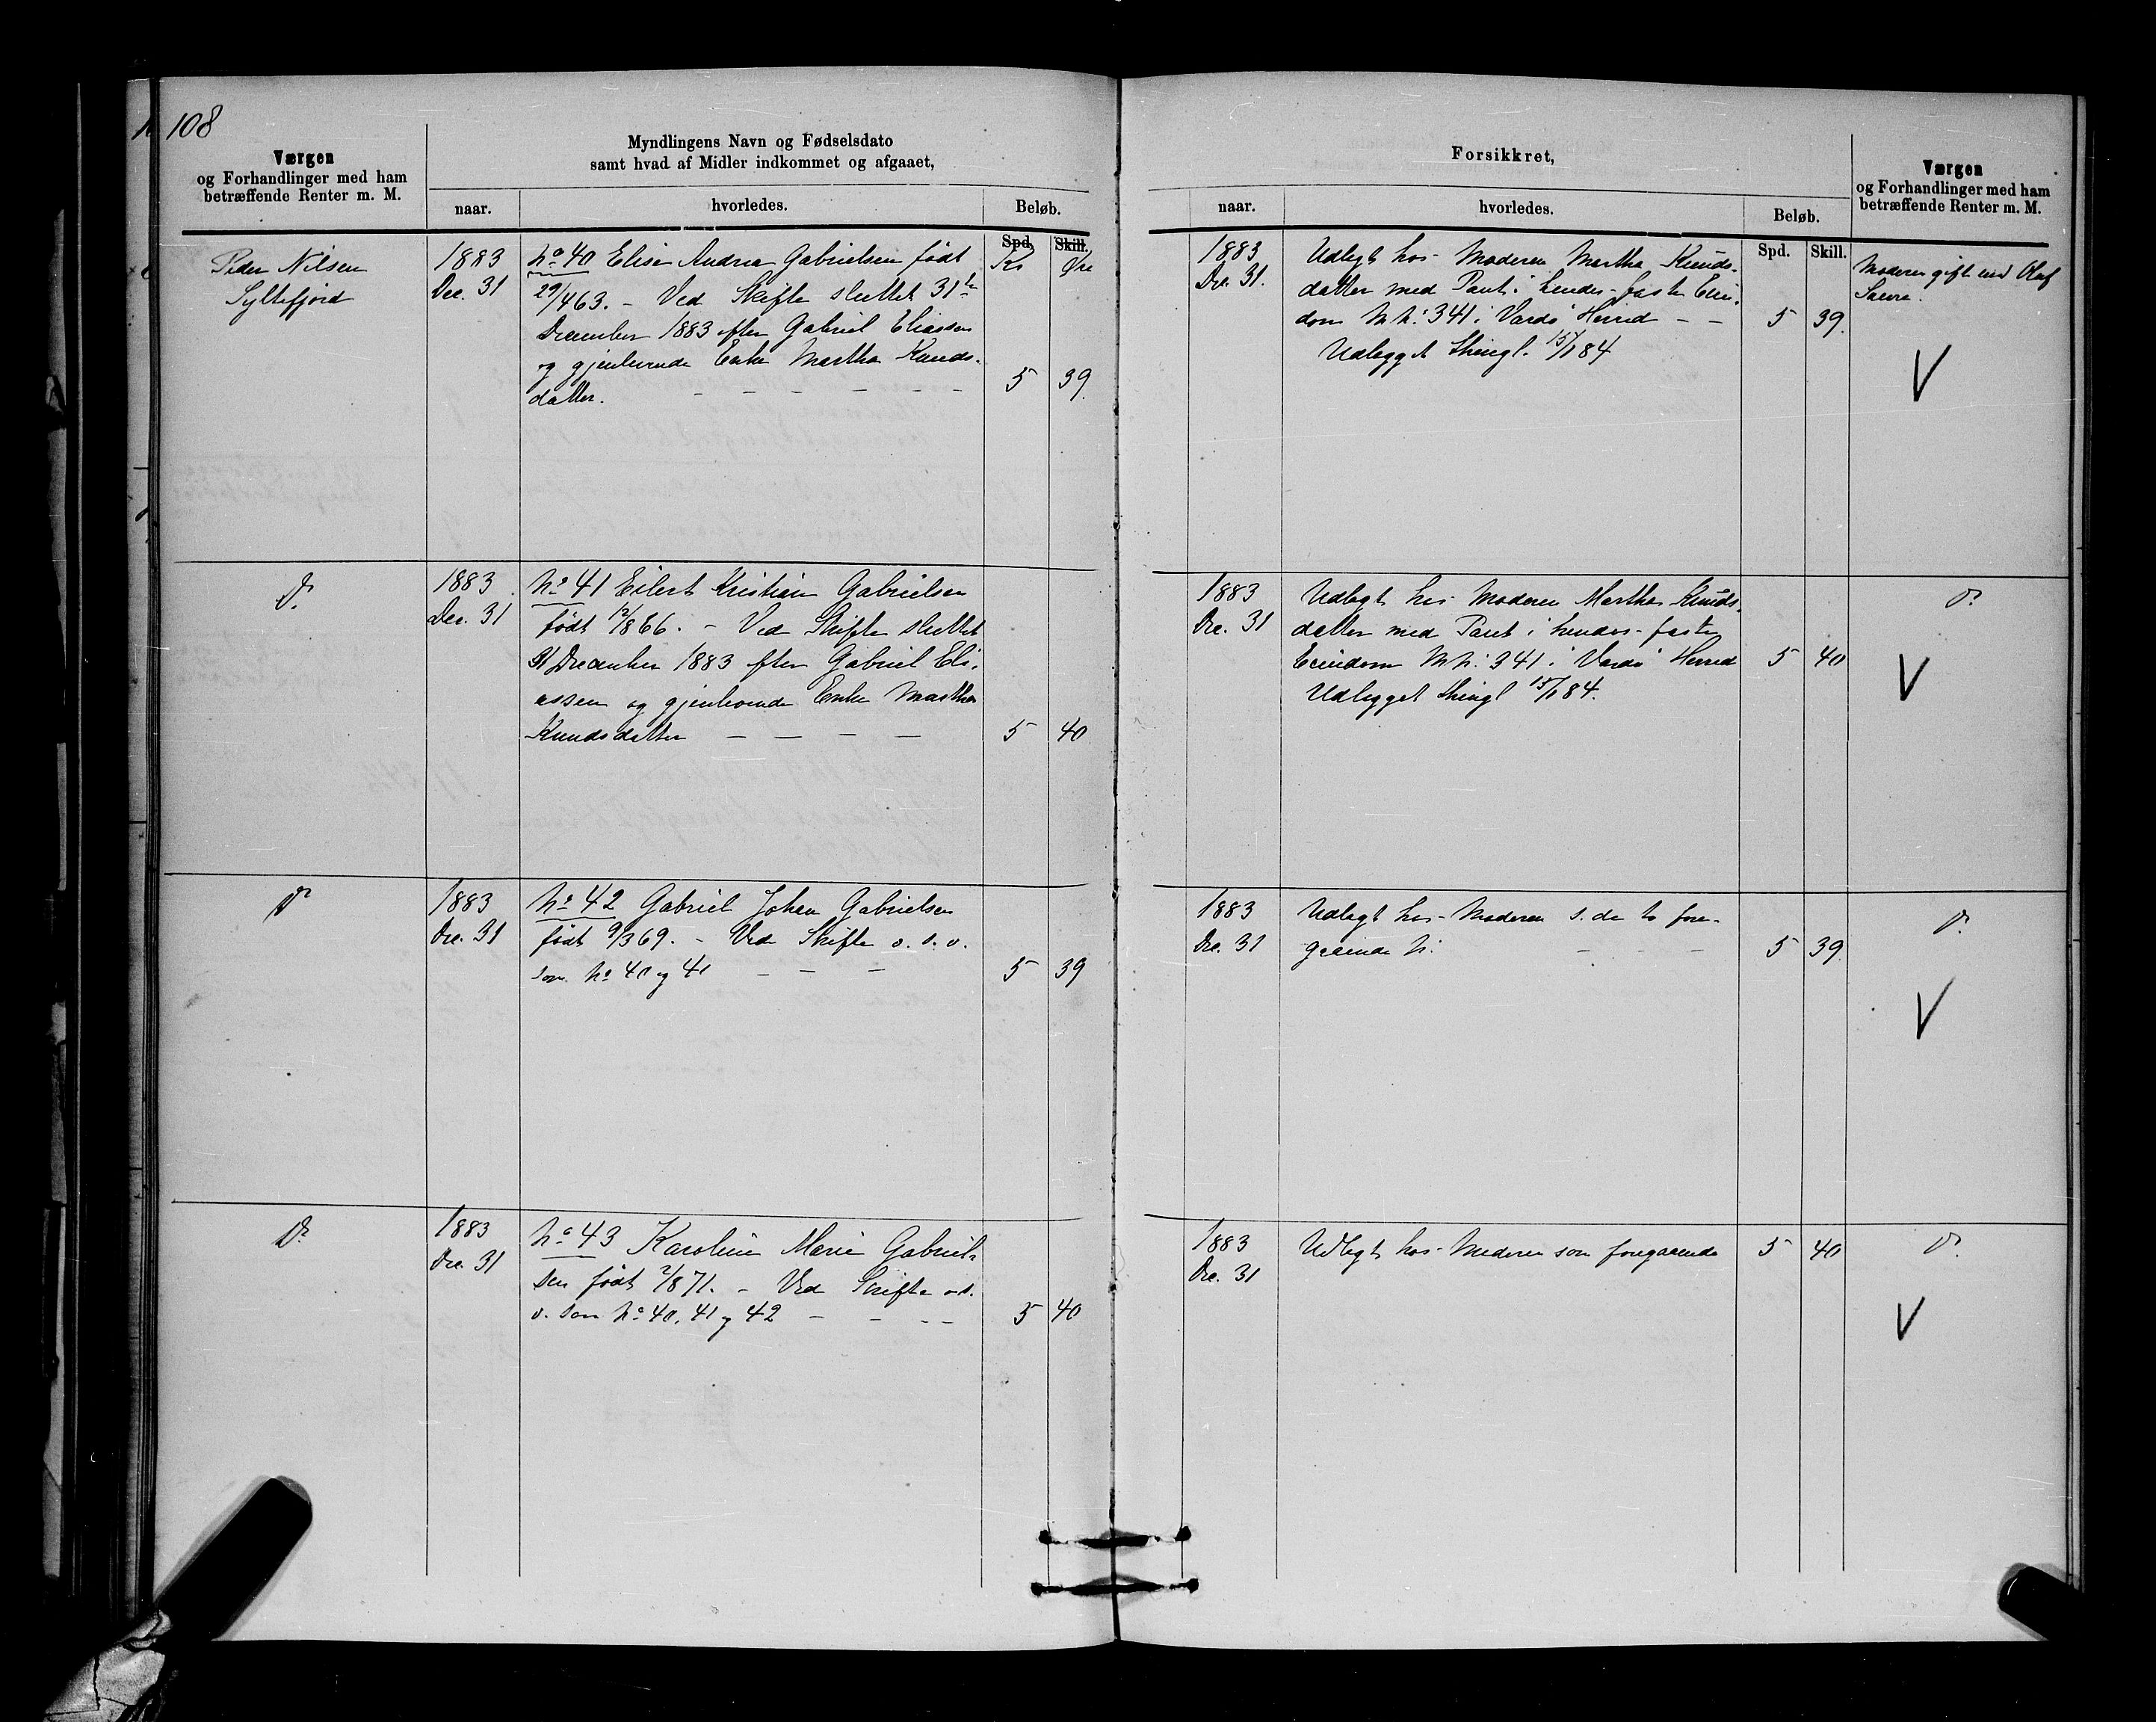 108
Værgen
og Forhandlinger med ham
betræffende Renter m. M.
Myndlingens Navn og Fødselsdato
samt hvad af Midler indkommet og afgaaet,
naar.
hvorledes.
Beløb.
Spd. Skill.
Kr Øre
Peder Nilsen
Syltefjord
1883
Dec. 31
No 40 Elise Andrea Gabrielsen født
29/4 63. - Ved Skifte sluttet 31te
December 1883 efter Gabriel Eliassen
og gjenlevende Enke Martha Knuds-
datter. - - - - - - 5 39.
Do
1883
Dec. 31
No 41 Eilert Kristian Gabrielsen
født 12/8 66. - Ved Skifte sluttet
31 December 1883 efter Gabriel Eli-
assen og gjenlevende Enke Martha
Knudsdatter - - - - 5 40
Do
1883
Dec. 31
No 42 Gabriel Johan Gabrielsen
født 9/3 69. - Ved Skifte o. s. v.
som No 40 og 41 - - - 5 39
Do
1883
Dec. 31
No 43 Karoline Marie Gabriel-
sen født 2/8 71. - Ved Skifte o. s.
v. som No 40, 41 og 42 - - - - 5 40
Forsikkret,
Værgen
og Forhandlinger med ham
betræffende Renter m. M.
naar.
hvorledes.
Beløb.
Spd. Skill.
1883
Dec. 31.
Udlagt hos Moderen Martha Knuds-
datter med Pant i hendes faste Eien-
dom M No 341 i Vardø Herred - - 5 39.
Udlægget thingl. 15/1 84
Moderen gift med Oluf
V
1883
Dec. 31
Udlagt hos Moderen Martha Knuds-
datter med Pant i hendes faste
Eiendom M No 341 i Vardø Herred 5 40
Udlægget thingl 15/1 84.
Do
V
1883
Dec. 31
Udlagt hos Moderen s. de to fore-
gaaende No - - - 5 39.
Do
V
1883
Dec. 31
Udlagt hos Moderen som foregaaende 5 40
Do
V